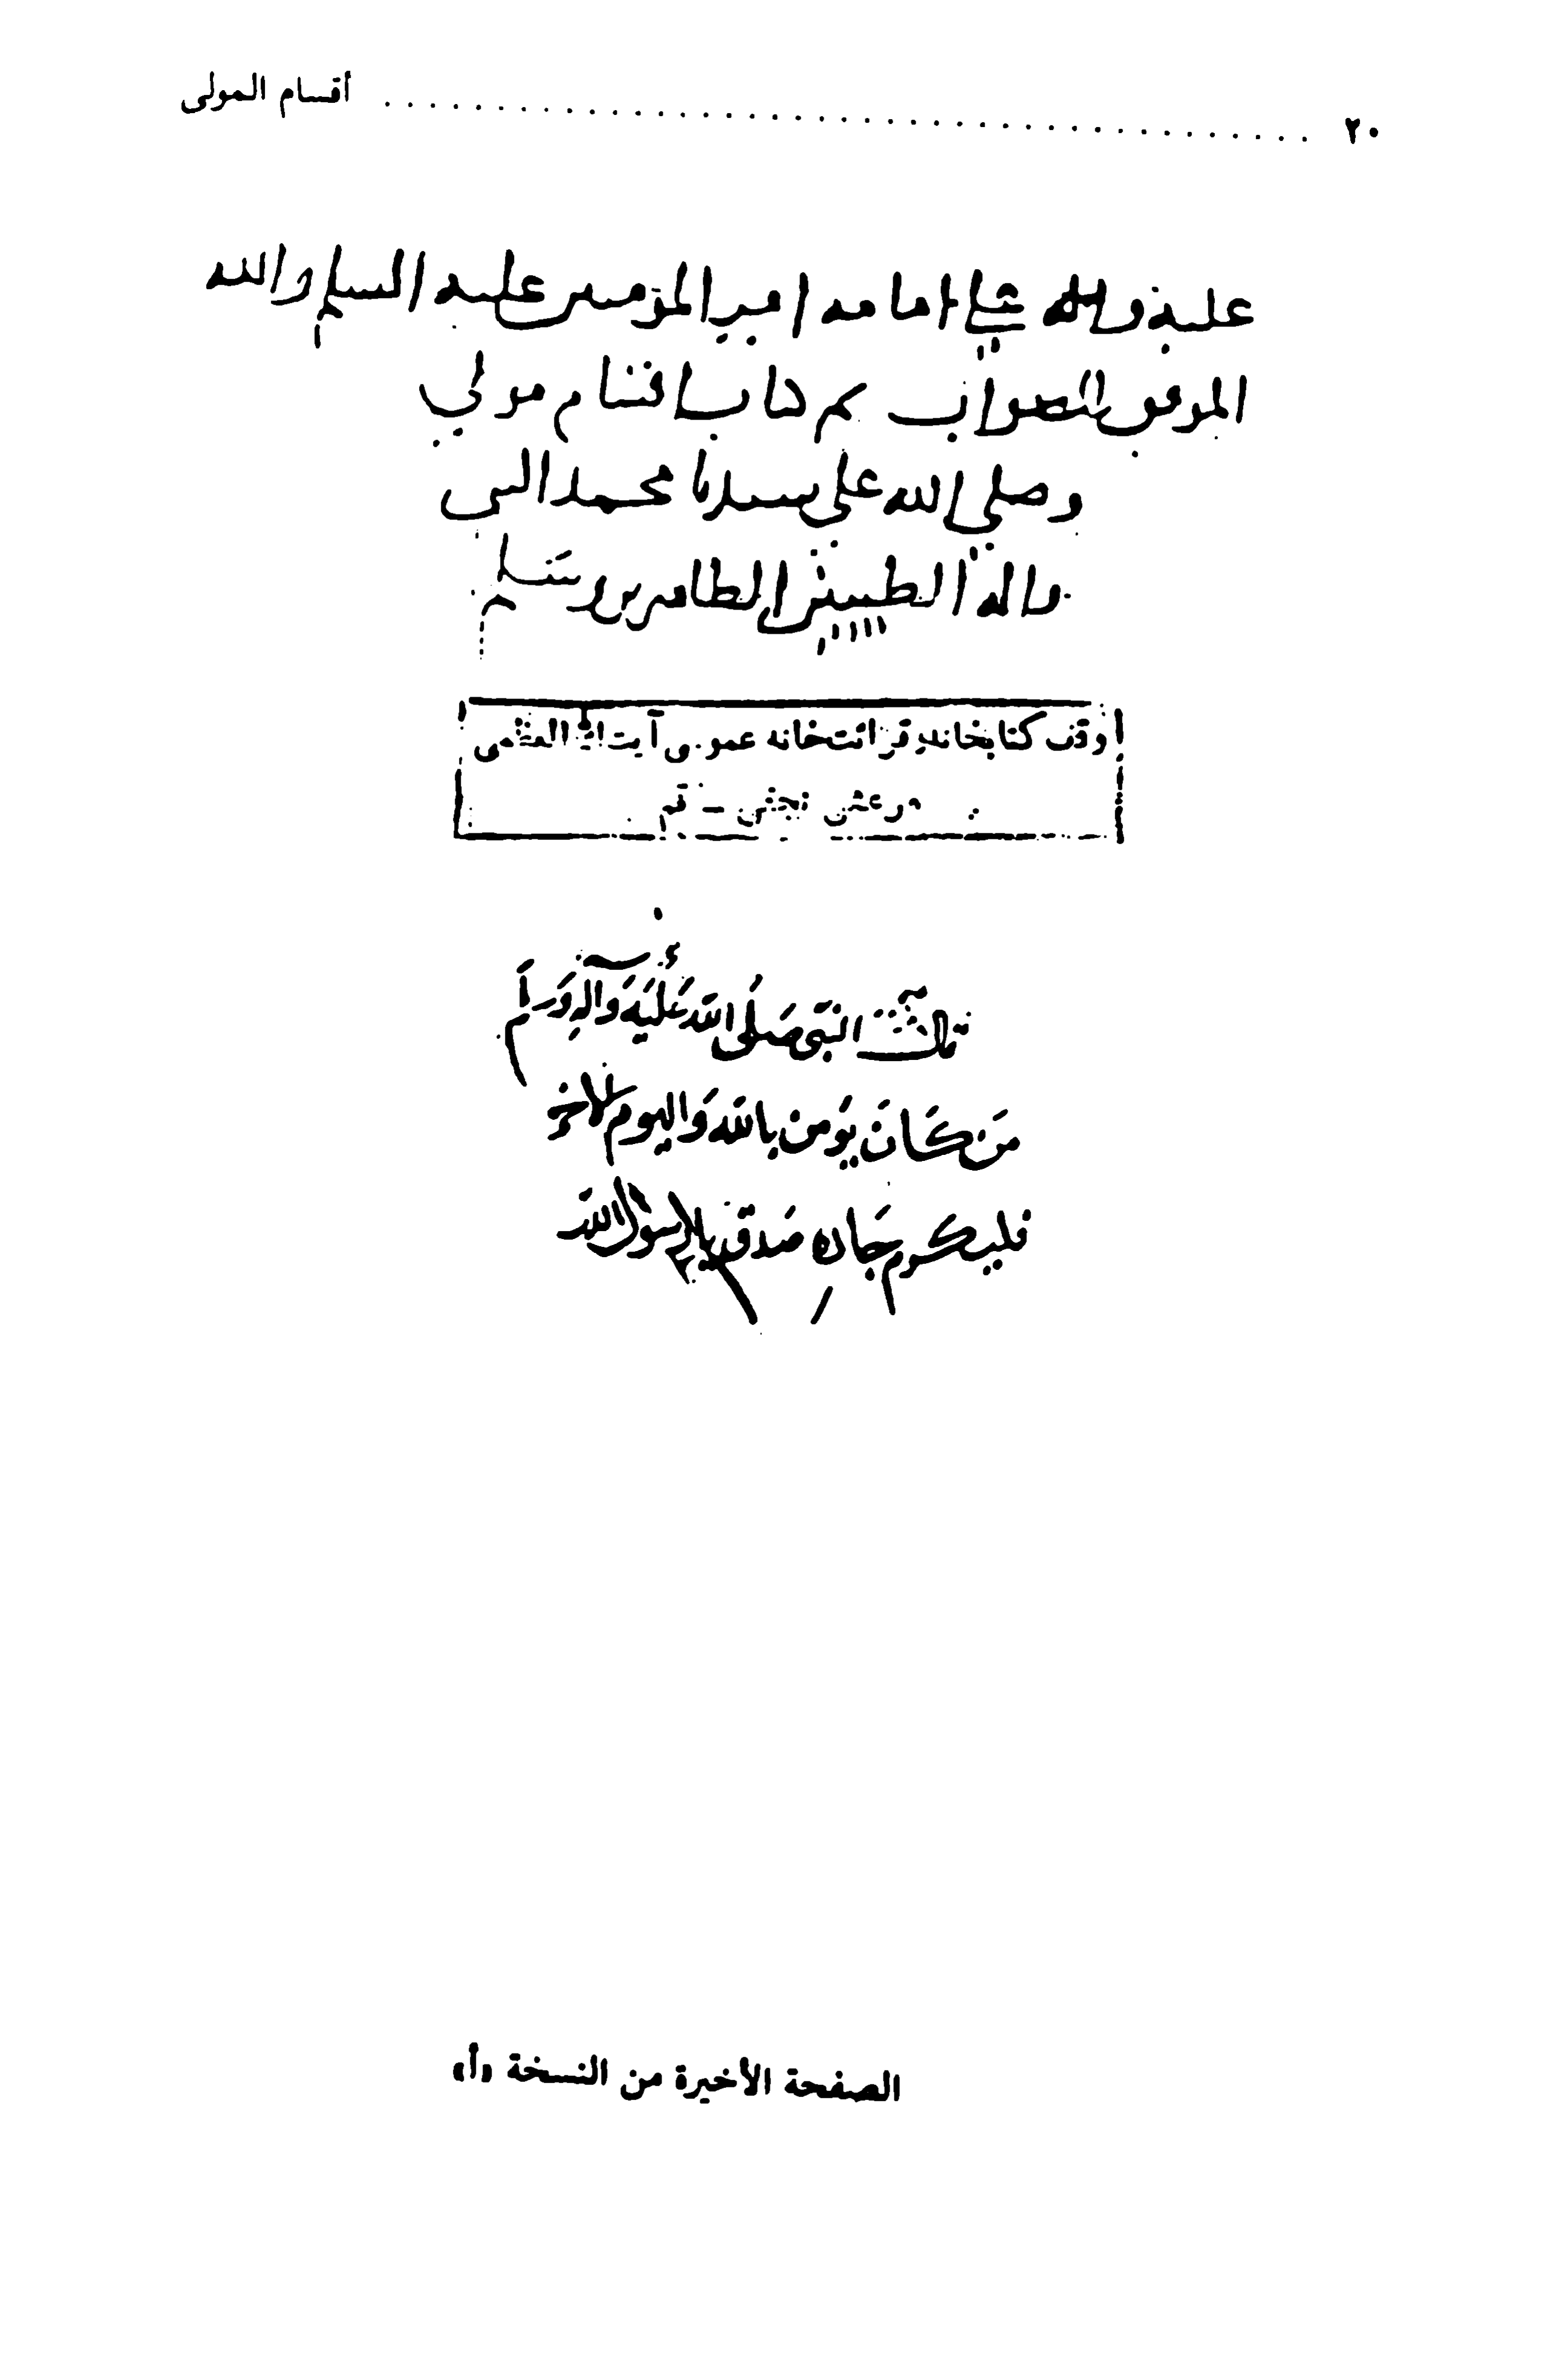 ٢٠ ........................................ أقسام المولى
عليه واله على امامه امير المومنين عليه السلم والله
الموفق للصواب تم كتاب اقسام مولى
وصلى الله على سيدنا محمد النبى
واله الطيبين الطاهرين وسلم
وقف كتابخانه و قرائت خانه عمومى آيت الله العظمى
مرعشى نجفى - قم
قال النبى صلى الله عليه وآله وسلم
من كان يؤمن بالله واليوم الاخر
فليكرم جاره صدق رسول الله
الصفحة الأخيرة من النسخة «أ»